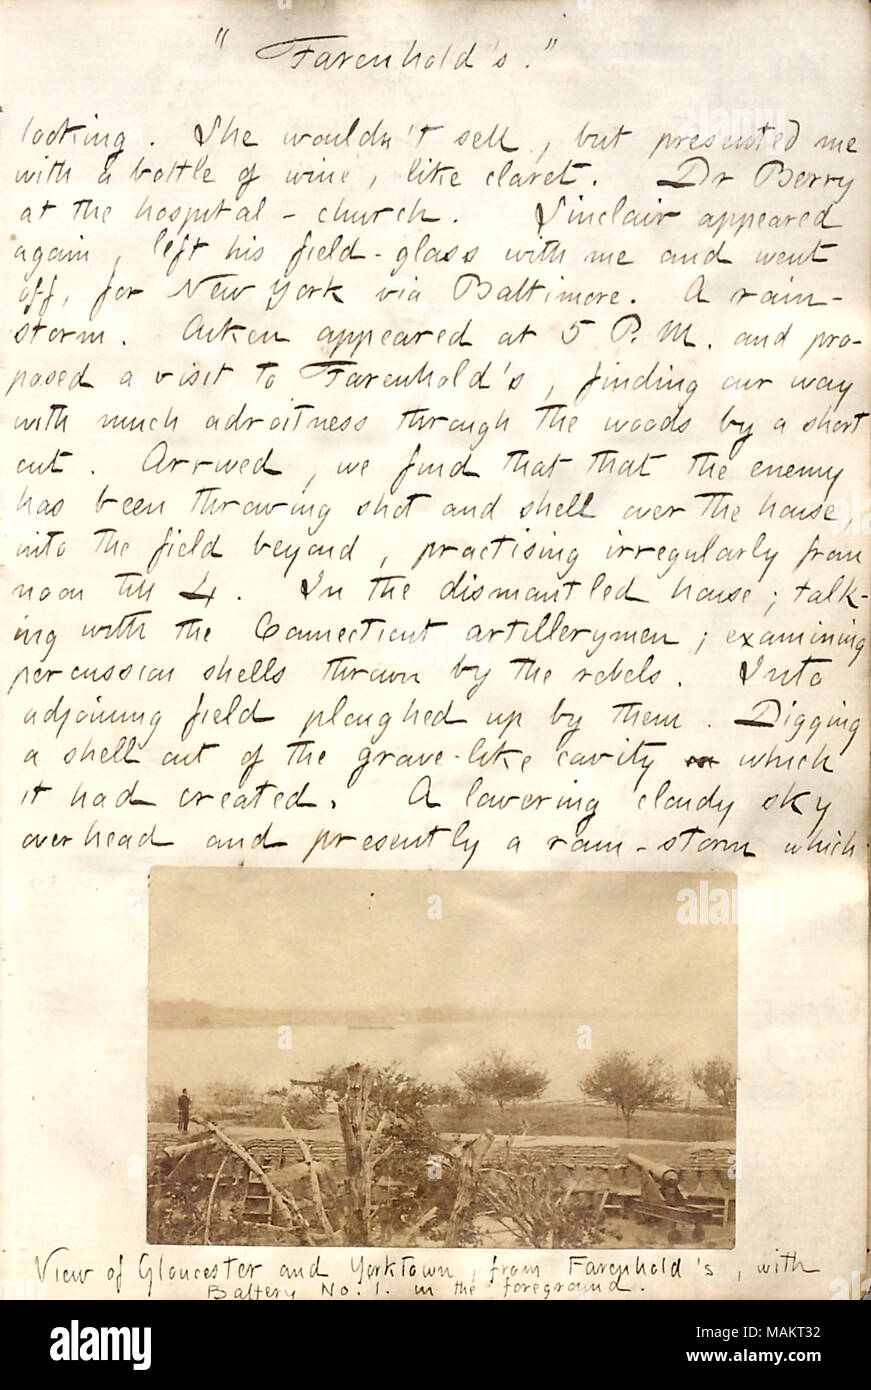 "Farenhold's."
looking. She wouldn't sell, but presented me
with a bottle of wine, like claret. Dr Berry
at the hospital-church. Sinclair appeared
again, left his field-glass with me and went
off, for New York via Baltimore. A rain-
storm. Aitken appeared at 5 P. M. and pro-
posed a visit to Farenhold's, finding our way
with much adroitness through the woods by a short
cut. Arrived, we find that that the enemy
has been throwing shot and shell over the house,
into the field beyond, practising irregularly from
noon till 4. In the dismantled house; talk-
ing with the Connecticut artillerymen; examining
percussion shells thrown by the rebels. Into
adjoining field ploughed up by them. Digging
a shell out of the grave-like cavity which
it had created. A lowering cloudy sky
overhead and presently a rain-storm which
View of Gloucester and Yorktown, from Farenhold's, with
Battery No. 1. in the foreground.
alamy
Image ID: MAKT32
www.alamy.com